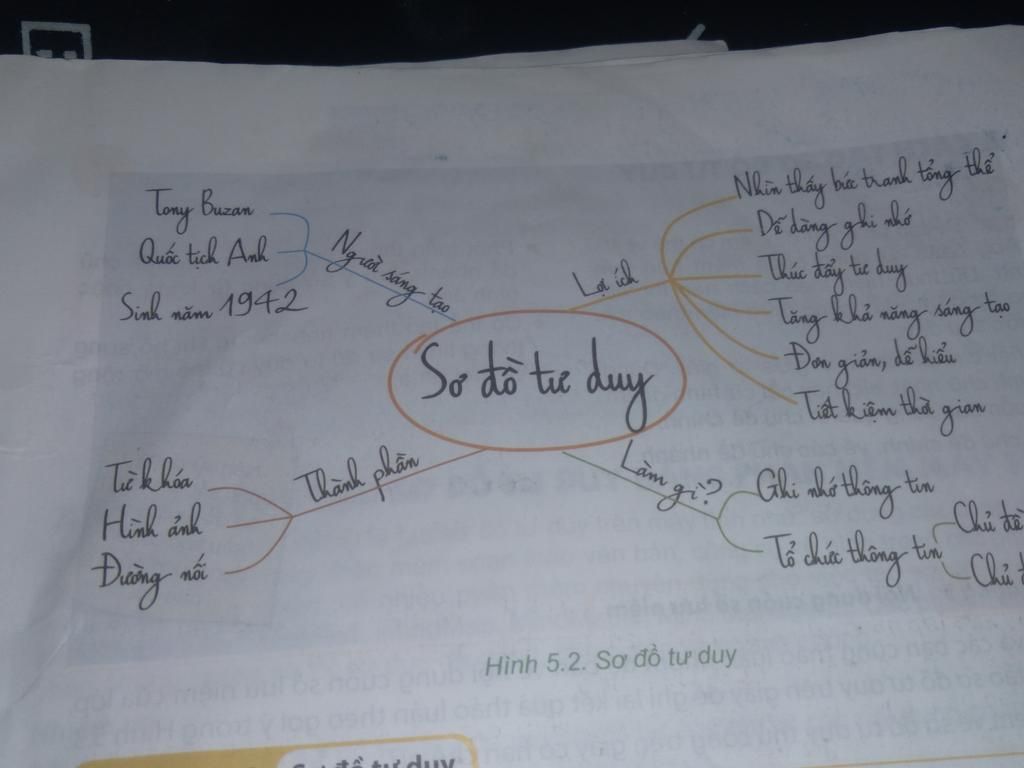 Tony Buzan
Quốc tịch Anh
Sinh năm 1942
Người sáng tạo
Lợi ích
Nhìn thấy bức tranh tổng thể
Dễ dàng ghi nhớ
Thúc đẩy tư duy
Tăng khả năng sáng tạo
Đơn giản, dễ hiểu
Tiết kiệm thời gian
Sơ đồ tư duy
Thành phần
Từ khóa
Hình ảnh
Đường nối
Làm gì?
Ghi nhớ thông tin
Tổ chức thông tin
Chủ đề
Chủ
Hình 5.2. Sơ đồ tư duy
Sơ đồ tư duy